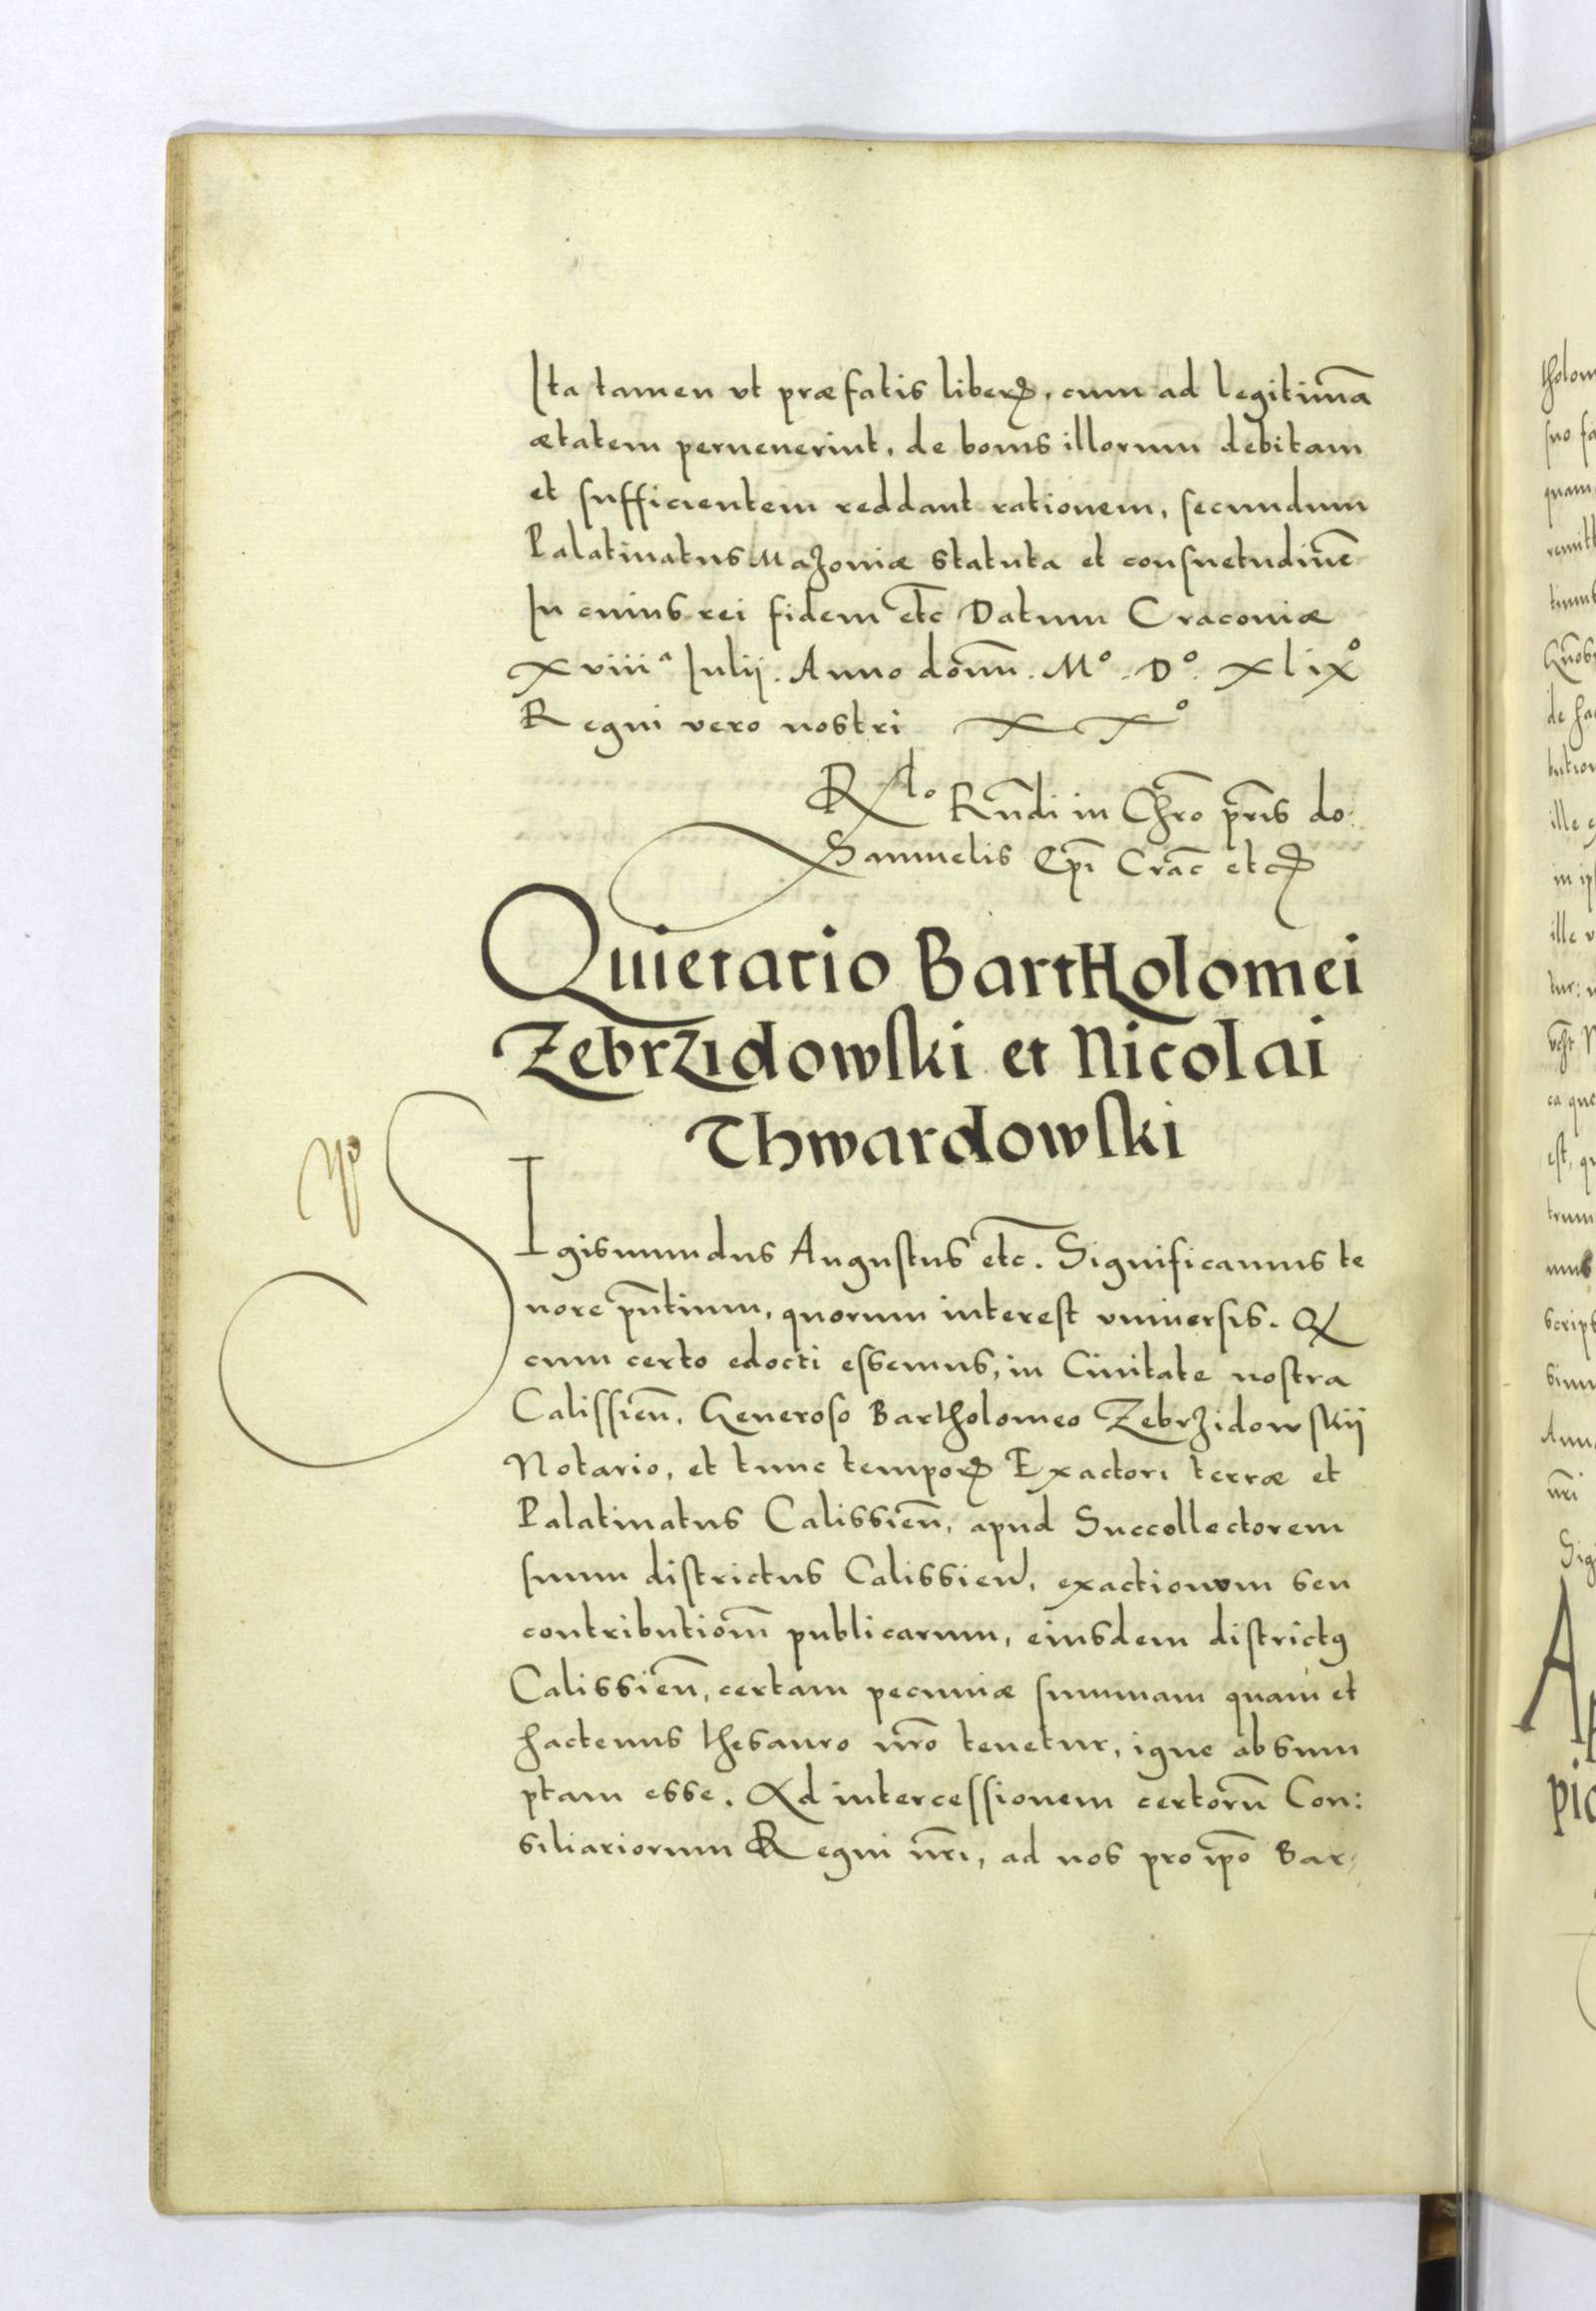 Ita tamen vt præfatis liberꝭ, cum ad legitimā
ætatem peruenerint, de bonis illorum debitam
et sufficientem reddant rationem, secundum
Palatinatus Mazoniæ statuta et consuetudinē
In cuius rei fidem etc̄ Datum Craconiæ
xviiiᵃ Iulij. Anno domī. Mº. Dº. xlixº
Regni vero nostri xxº
Rlº Rn̄di in Chr̄o pr̄is do:
Samuelis Ep̄i Crac̄ etcꝭ
Quietatio Bartholomei
Zebrzidowski et Nicolai
Thwardowski
SIgismundus Augustus etc̄. Significamus te
nore pn̄tium, quorum interest vniuersis. Q
cum certo edocti essemus, in Ciuitate nostra
Calissien̄. Generoso Bartholomeo Zebrzidowskij
Notario, et tunc temporꝭ Exactori terræ et
Palatinatus Calissien̄, apud Succollectorem
suum districtus Calissien̄, exactionum seu
contributiom̄ publicarum, eiusdem districtꝯ
Calissien̄, certam pecuniæ summam quam et
hactenus thesauro nr̄o tenetur, igne absum
ptam esse. Ad intercessionem certorū Con:
siliariorum Regni nr̄i, ad nos pro ip̄o Bar-
tholom
suo fa
quam
remitt
de ha
ille
in ip
ille v
tur:
ca que
est, qu
trum
mus
script
nr̄i
Sigi
A
pic